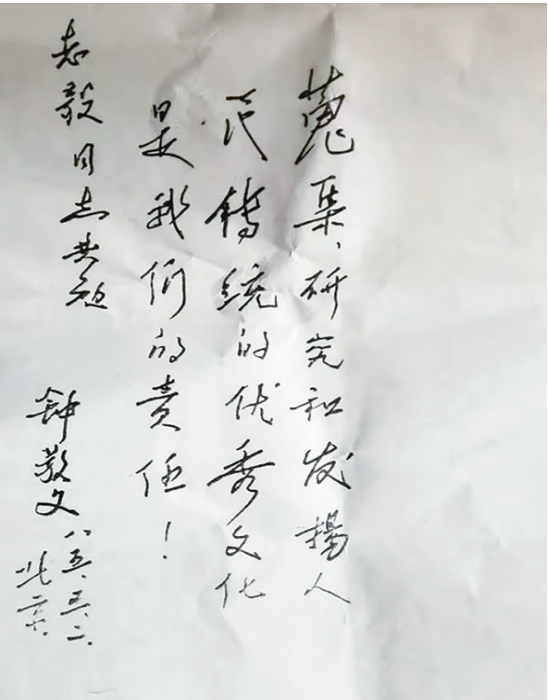 蒐集、研究和发揚人
民傳統的优秀文化
是我们的責任！
志毅同志共勉
鍾敬文 八五.三.二.
北京